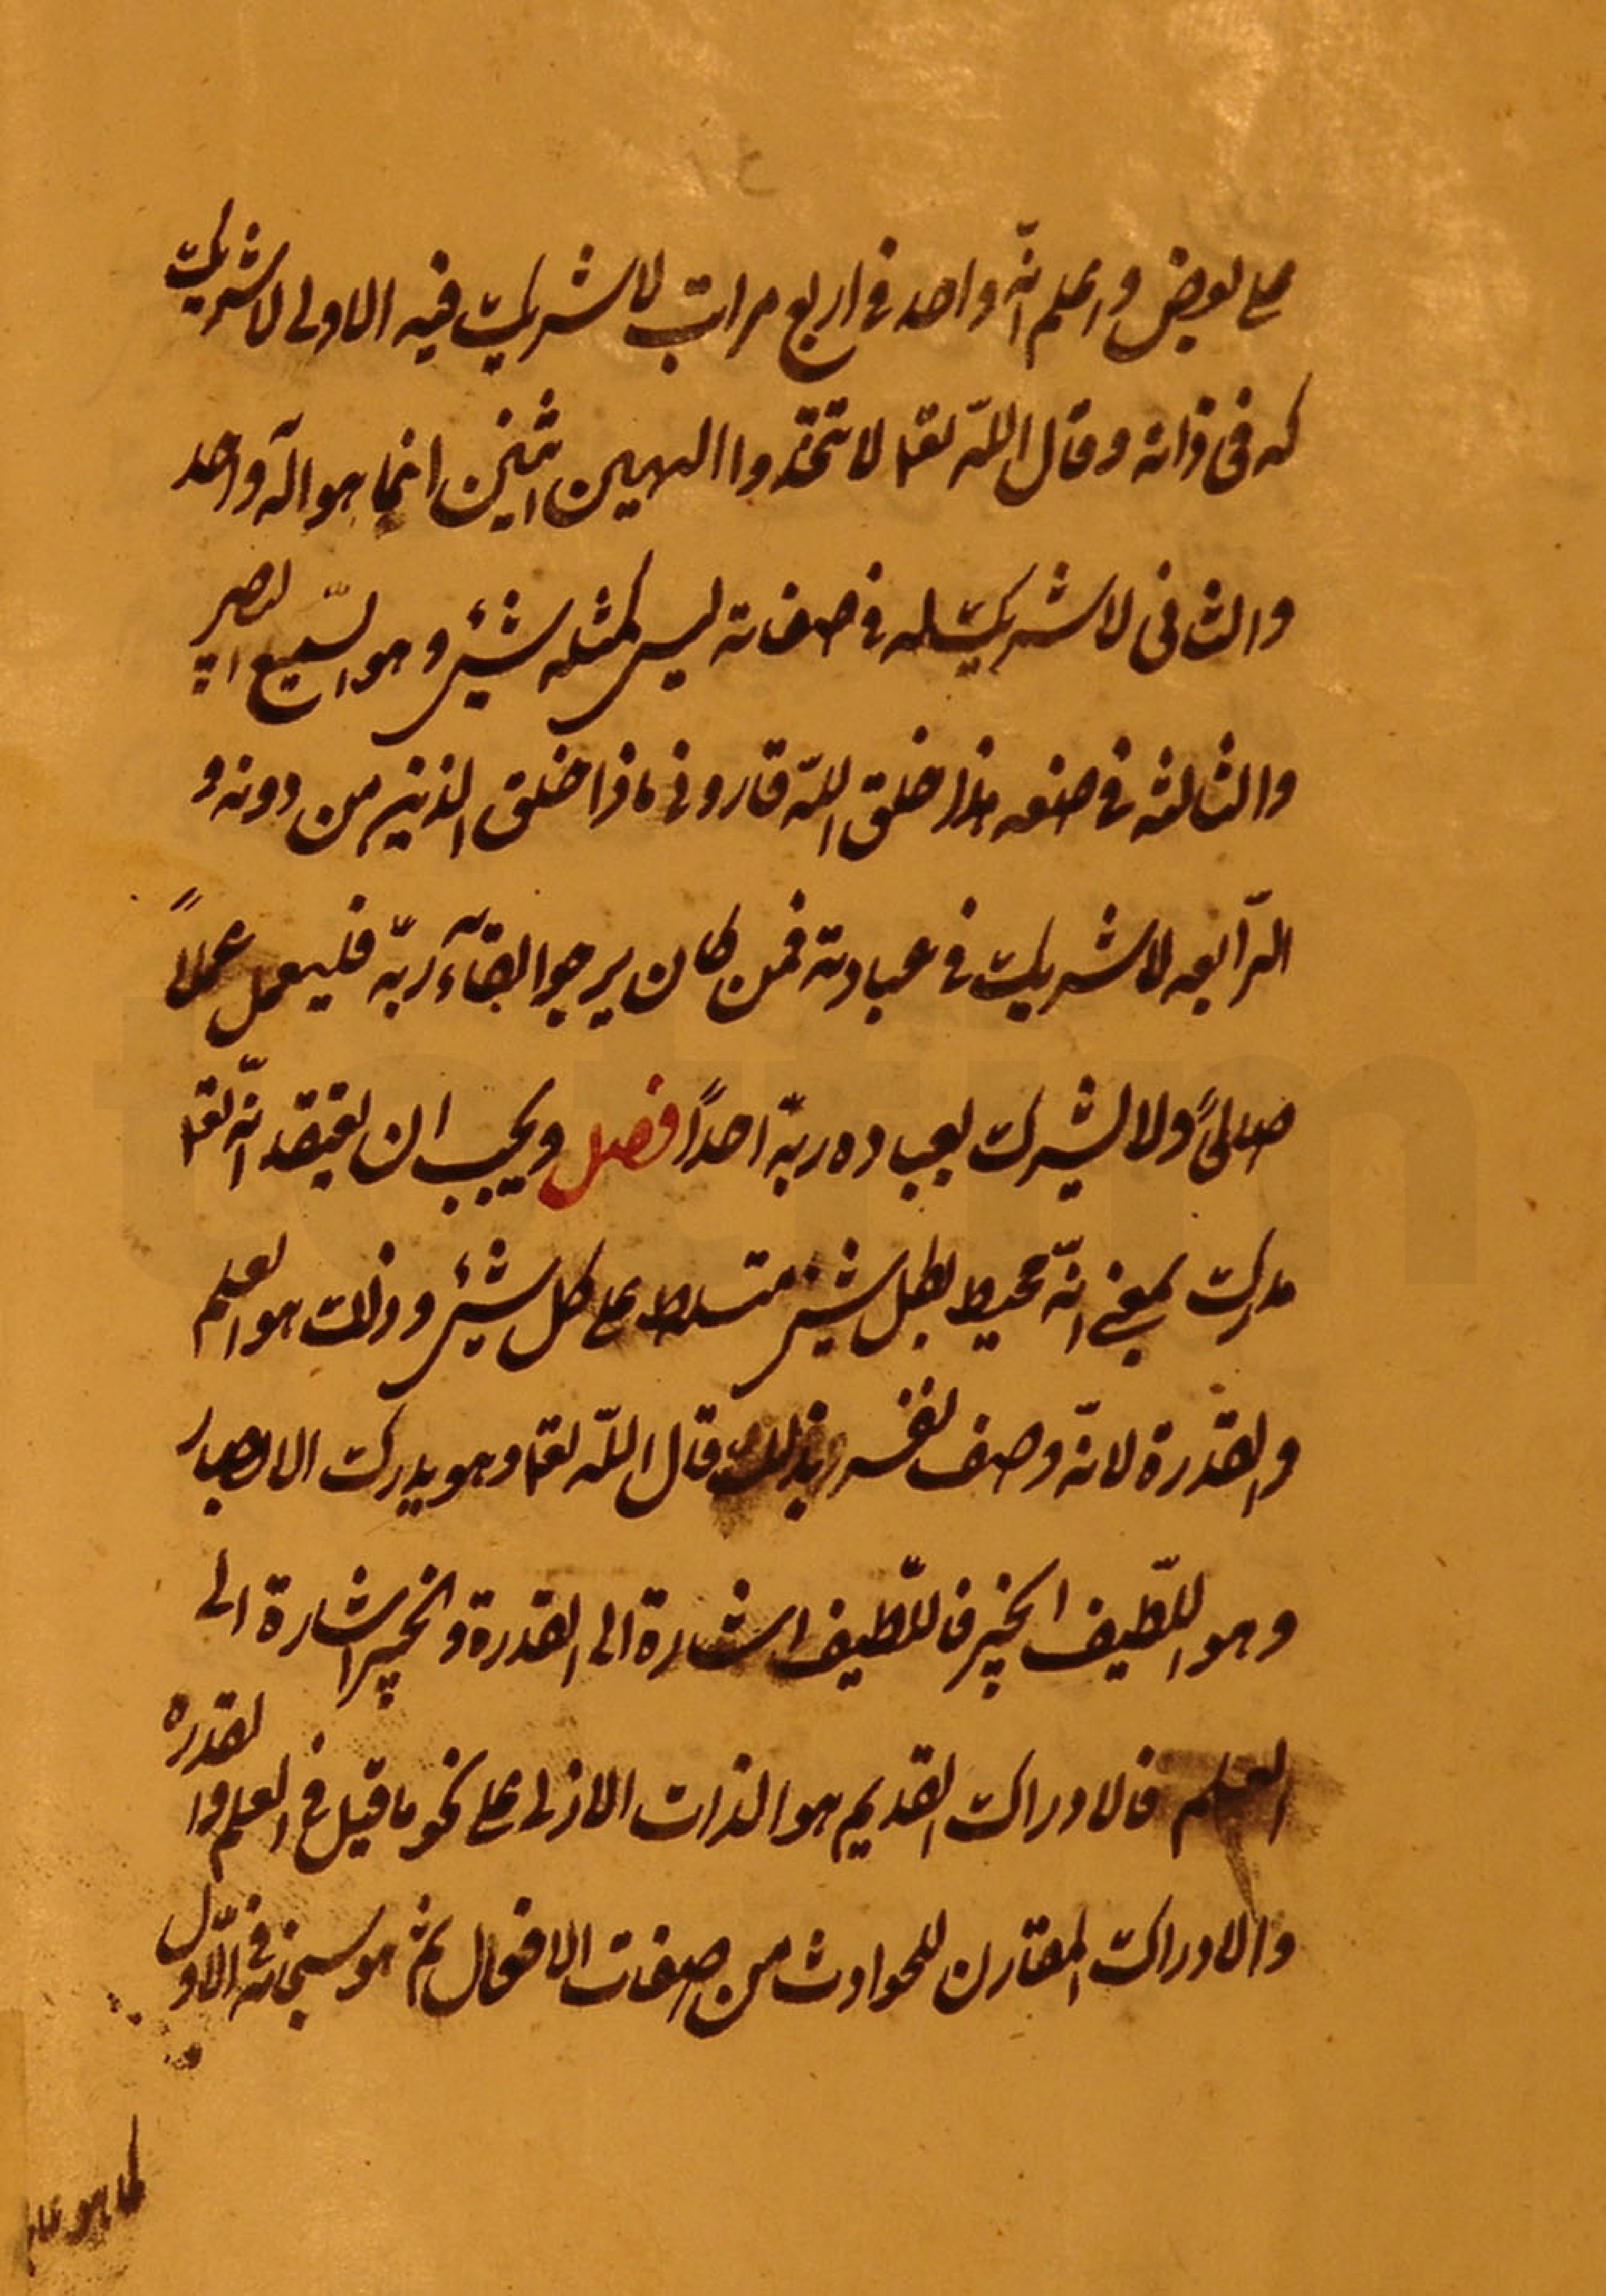 على بعض واعلم انّه واحد فى اربع مراتب لا شريك فيه الاولى لا شريك
له فى ذاته وقال اللّه تعا لا تتخذوا الهين اثنين انما هو اله واحد
والثانى لا شريك له فى صفاته ليس كمثله شيئ وهو السّميع البصير
والثالثه فى صنعه هذا خلق اللّه فارونى ماذا خلق الذين من دونه و
الرّابعه لا شريك فى عبادته فمن كان يرجوا لقآء ربّه فليعمل عملاً
صالحاً ولا يشرك بعباده ربّه احداً فصل ويجب ان يعتقد انّه تعا
مدرك بمعنى انّه محيط بكل شيئ متسلط على كل شيئ وذلك هو العلم
والقدرة لانّه وصف نفسه بذلك قال اللّه تعا وهو يدرك الابصار
وهو اللّطيف الخبير فاللّطيف اشارة الى القدرة والخبير اشارة الى
العلم فالادراك القديم هو الذات الازلى على نحو ما قيل فى العلم والقدره
والادراك المقارن للحوادث من صفات الافعال ثم هو سبحانه فى الاوّل
كما هو
totfim